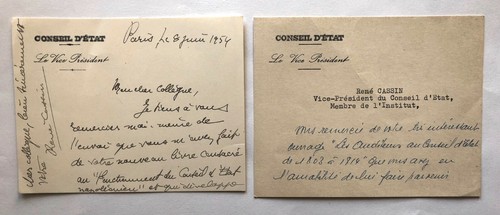 CONSEIL D'ÉTAT
Le Vice Président
Paris, le 8 juin 1954
Mon cher Collègue,
Je tiens à vous
remercier moi-même de
l'envoi que vous m'avez fait
de votre nouveau livre consacré
au "Fonctionnement du Conseil d'Etat
napoléonien" et qui développe
mon collègue, bien sincèrement
votre René Cassin
CONSEIL D'ÉTAT
Le Vice Président
René CASSIN
Vice-Président du Conseil d'Etat,
Membre de l'Institut,
Vous remercie de votre très intéressant
ouvrage "Les Auditeurs au Conseil d'Etat
de 1803 à 1814" que vous avez eu
l'amabilité de lui faire parvenir